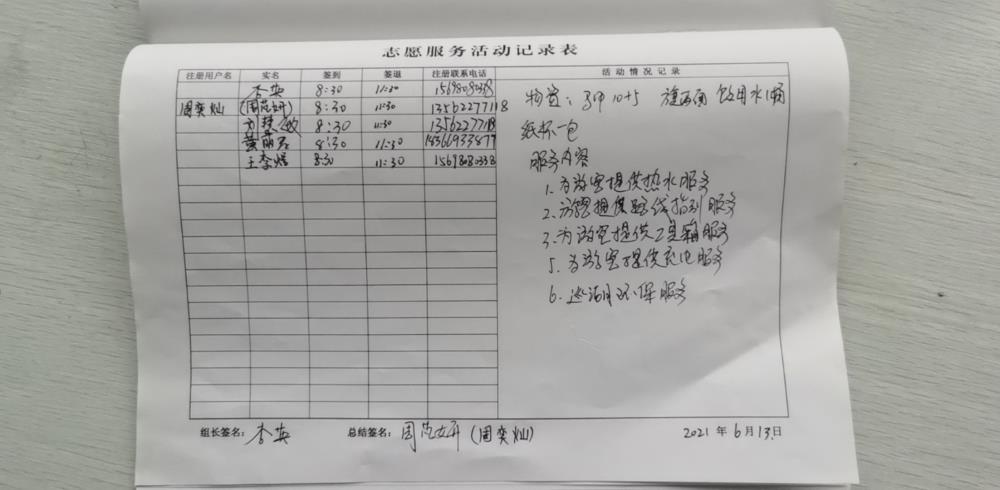 志愿服务活动记录表
注册用户名 实名 签到 签退 注册联系电话 活动情况记录
李英 8:30 11:30 15698080338
周奕灿 (周范妍) 8:30 11:30 13562277118
8:30 11:30 13562277118
黄丽君 8:30 11:30 18366933877
王李煜 8:30 11:30 15698080338
物资: 马甲 10+5 旗两面 饮用水1桶
纸杯一包
服务内容
1. 为游客提供热水服务
2. 为游客提供路线指引服务
3. 为游客提供工具箱服务
5. 为游客提供充电服务
6. 巡湖环保服务
组长签名: 李英 总结签名: 周范妍 (周奕灿) 2021 年 6 月 13 日